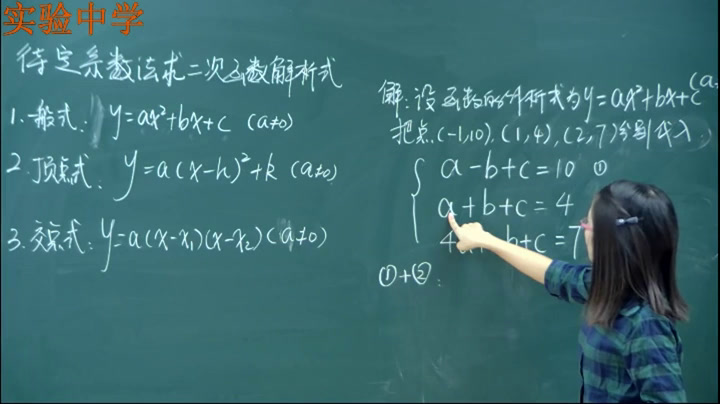 实验中学
待定系数法求二次函数解析式
1.一般式: y=ax²+bx+c (a≠0)
2.顶点式: y=a(x-h)²+k (a≠0)
3.交点式: y=a(x-x₁)(x-x₂)(a≠0)
解:设函数的解析式为y=ax²+bx+c(a
把点(-1,10),(1,4),(2,7)分别代入
a-b+c=10 ①
a+b+c=4
b+c=7
①+②: